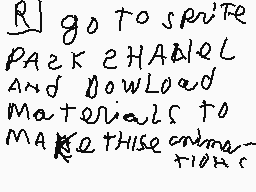 R go to sprite
PASK SHANEL
AND DOWLOAd
MAterials to
MAKe THISe anima-
tions